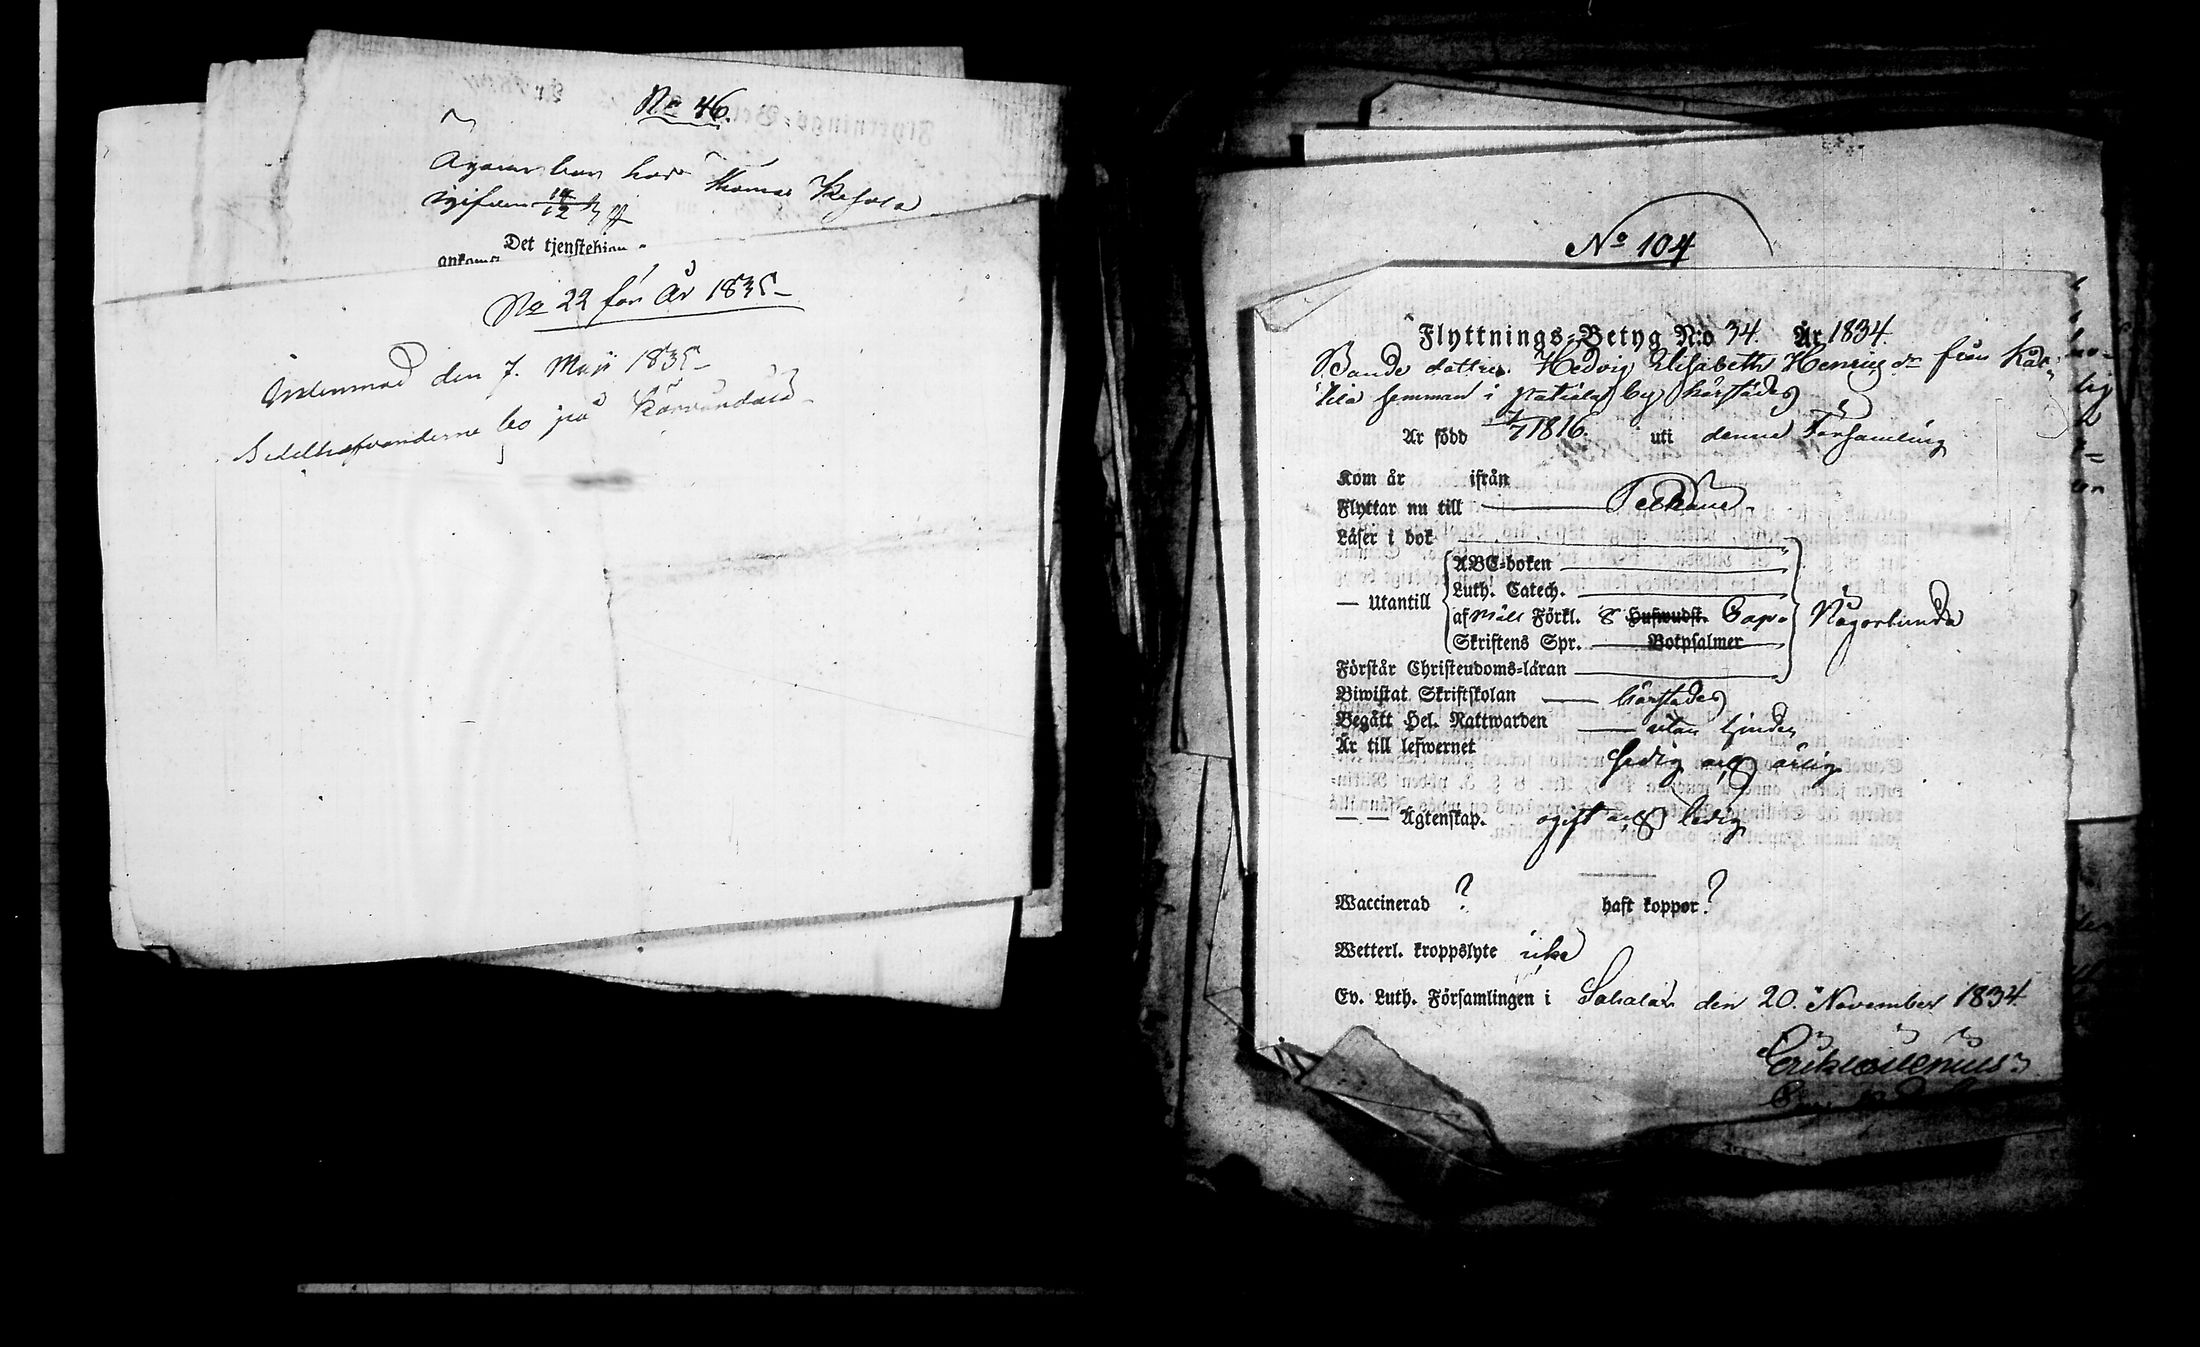 No 46.
har Thomas
14/12
Det tjenstehion
ankoms
No 22 för År 1835
Inlemnad den 7. Maji 1835
Betelhafvanderne bo på
No 104
Flyttnings-Betyg N:o 34. År 1834.
Bonde dottren Hedvig Elisabeth Henrics dr från
hemman i by härstädes
Är född 4/7 1816. uti denna Församling
Kom år ifrån
Flyttar nu till Pelkäne
Läser i bok
— Utantill
ABC-boken
Luth. Catech.
af Möll Förkl. 8 Hufwudst. Cap.
Skriftens Spr. Botpsalmer
Någorlunda
Förstår Christendoms-läran
Biwistat Skriftskolan härstädes
Begått Hel. Nattwarden utan hinder
Är till lefwernet hedig och ärlig
— — Ägtenskap. ogift och ledig
Waccinerad ? haft koppor ?
Wetterl. kroppslyte icke
Ev. Luth. Församlingen i Sahalax den 20. November 1834.